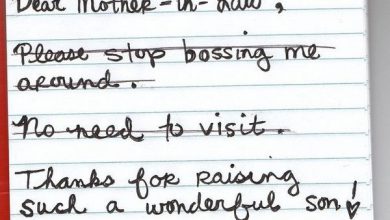 Dear Mother-in-Law,
Please stop bossing me
around.
No need to visit.
Thanks for raising
such a wonderful son!